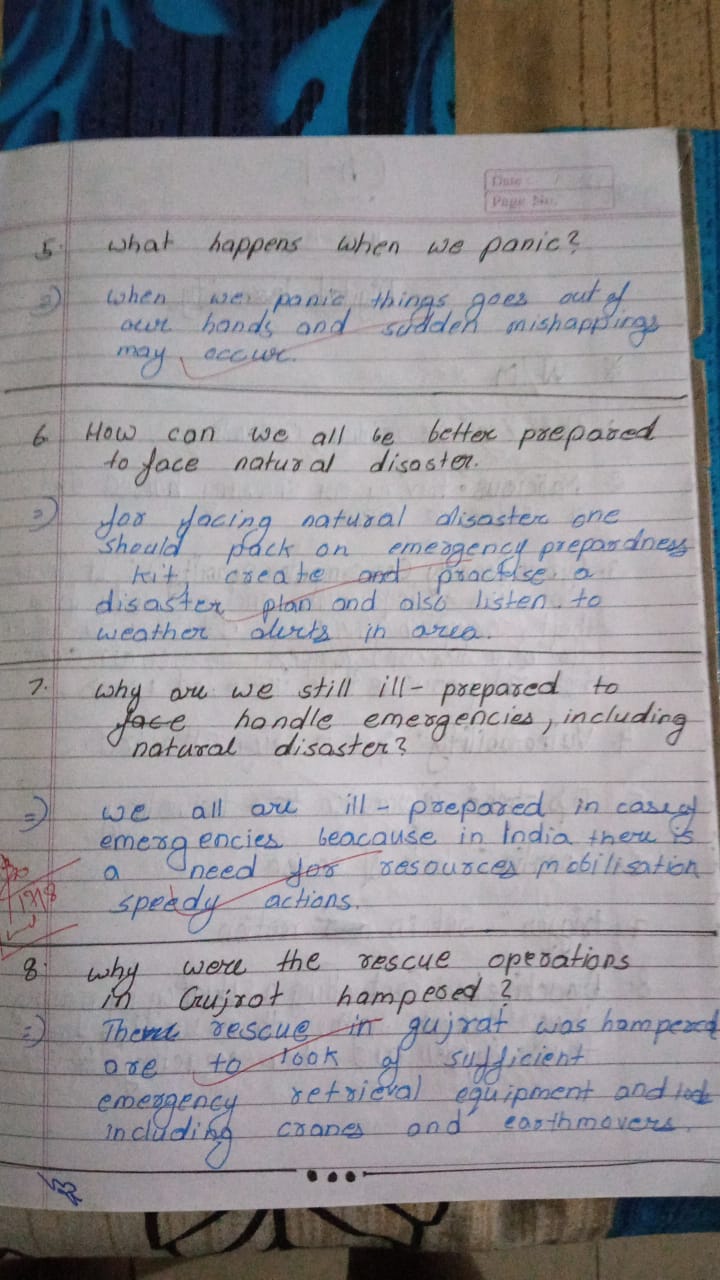 Date :
Page No.
5. what happens when we panic?
=) when we panic things goes out of
our hands and sudden mishappings
may occur.
6. How can we all be better prepared
to face natural disaster.
=) for facing natural disaster one
should pack an emergency prepardness
kit, create and practise a
disaster plan and also listen to
weather alerts in area.
7. why are we still ill- prepared to
face handle emergencies, including
natural disaster?
=) we all are ill - prepared in case of
emergencies beacause in India there is
a need for resources mobilisation
speedy actions.
8. why were the rescue operations
in Gujrat hampered?
=) The rescue in gujrat was hampered
are to look of sufficient
emergency retrieval equipment and
including cranes and earthmovers.